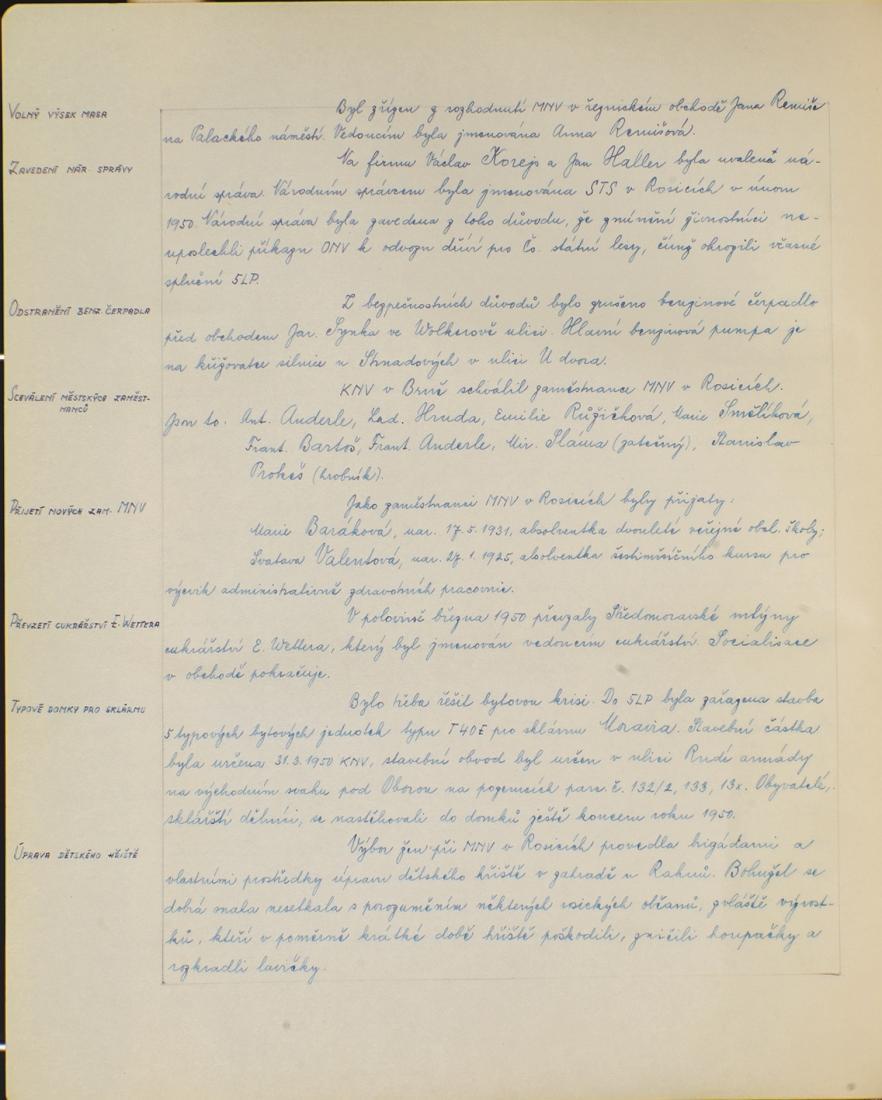 VOLNÝ VÝSEK MASA
Byl zřízen z rozhodnutí MNV v řeznickém obchodě Jana Remiše
na Palackého náměstí. Vedoucím byla jmenována Anna Remišová.
ZAVEDENÍ NÁR. SPRÁVY
Na firmu Václav Korejs a Jan Haller byla uvalena ná-
rodní správa. Národním správcem byla jmenována STS v Rosicích v únoru
1950. Národní správa byla zavedena z toho důvodu, že zmínění živnostníci ne-
uposlechli příkazu ONV k odvozu dříví pro Čs. státní lesy, čímž ohrozili včasné
splnění 5LP.
ODSTRANĚNÍ BENZ. ČERPADLA
Z bezpečnostních důvodů bylo zrušeno benzinové čerpadlo
před obchodem Jar. Synka ve Wolkerově ulici. Hlavní benzinová pumpa je
na křižovatce silnice u Strnadových v ulici U dvora.
SCHVÁLENÍ MĚSTSKÝCH ZAMĚST-
NANCŮ
KNV v Brně schválil zaměstnance MNV v Rosicích.
Jsou to: Ant. Anderle, Lad. Hruda, Emilie Růžičková, Marie Smělíková,
Frant. Bartoš, Frant. Anderle, Mir. Sláma (zatečný), Stanislav
Prokeš (hrobník).
PŘIJETÍ NOVÝCH ZAM. MNV
Jako zaměstnanci MNV v Rosicích byly přijaty:
Marie Baráková, nar. 17.5.1931, absolventka dvouleté veřejné obch. školy;
Svatava Valentová, nar. 27.1.1925, absolventka šestiměsíčního kursu pro
výcvik administrativně zdravotních pracovnic.
PŘEVZETÍ CUKRÁŘSTVÍ E. WETTERA
V polovině března 1950 převzaly Středomoravské mlýny
cukrářství E. Wettera, který byl jmenován vedoucím cukrářství. Socialisace
v obchodě pokračuje.
TYPOVÉ DOMKY PRO SKLÁRNU
Bylo třeba řešit bytovou krisi. Do 5LP byla zařazena stavba
5 typových bytových jednotek typu T40E pro sklárnu Moravia. Stavební částka
byla určena 31.3.1950 KNV, stavební obvod byl určen v ulici Rudé armády
na východním svahu pod Oborou na pozemcích parc. č. 132/2, 133, Obyvatelé,
sklářští dělníci, se nastěhovali do domků ještě koncem roku 1950.
ÚPRAVA DĚTSKÉHO HŘIŠTĚ
Výbor žen při MNV v Rosicích provedla brigádami a
vlastními prostředky úpravu dětského hřiště v zahradě u Rahnů. Bohužel se
dobrá snaha nesetkala s porozuměním některých rosických občanů, zvláště výrost-
ků, kteří v poměrně krátké době hřiště poškodili, zničili houpačky a
rozkradli lavičky.